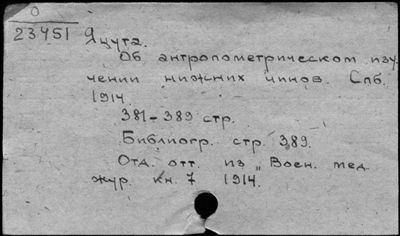 О
23451 Яцута.
Об антропометрическом изу
чении нижних чинов. Спб.
1914.
381-389 стр.
Библиогр. стр. 389.
Отд. отт. из „Воен. мед.
жур. кн. 7 1914.